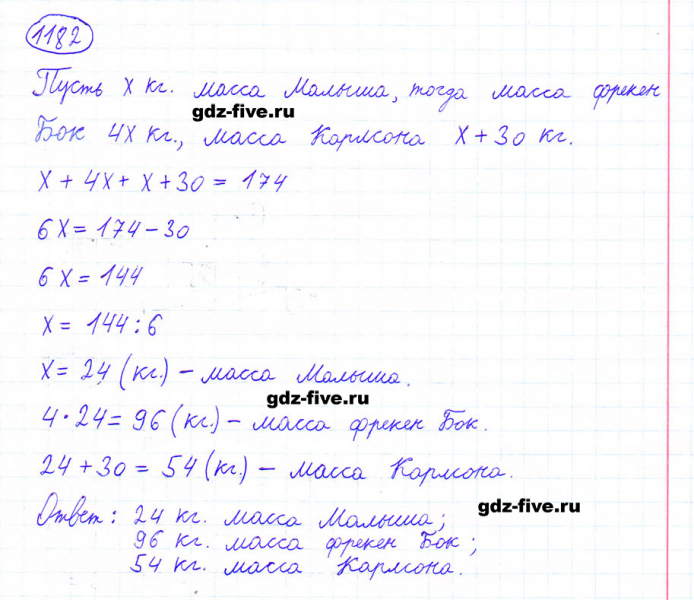 1182
Пусть x кг. масса Малыша, тогда масса фрекен
gdz-five.ru
Бок 4x кг., масса Карлсона x + 30 кг.
x + 4x + x + 30 = 174
6x = 174 - 30
6x = 144
x = 144 : 6
x = 24 (кг.) - масса Малыша.
gdz-five.ru
4 · 24 = 96 (кг.) - масса фрекен Бок.
24 + 30 = 54 (кг.) - масса Карлсона.
gdz-five.ru
Ответ: 24 кг. масса Малыша;
96 кг. масса фрекен Бок;
54 кг. масса Карлсона.